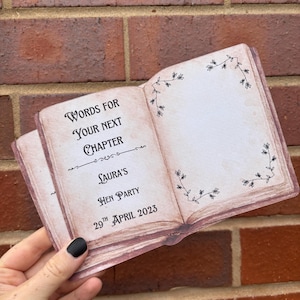 Words for
Your next
Chapter
Laura's
Hen Party
29th April 2023